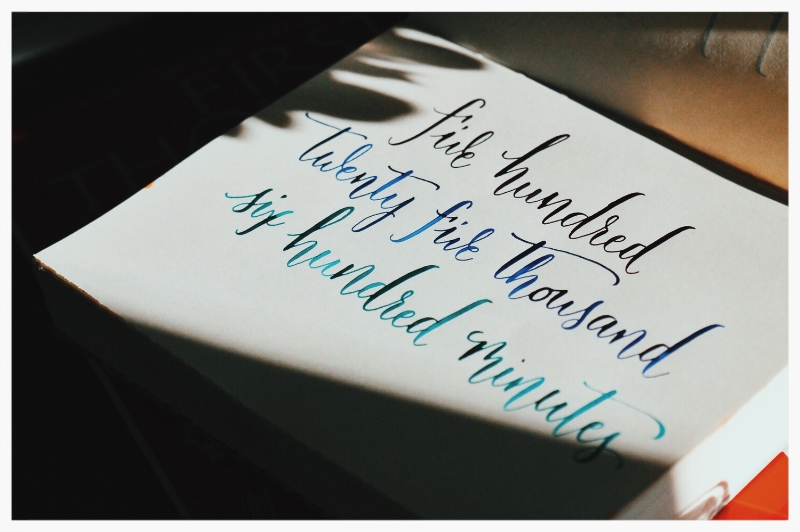 five hundred
twenty five thousand
six hundred minutes